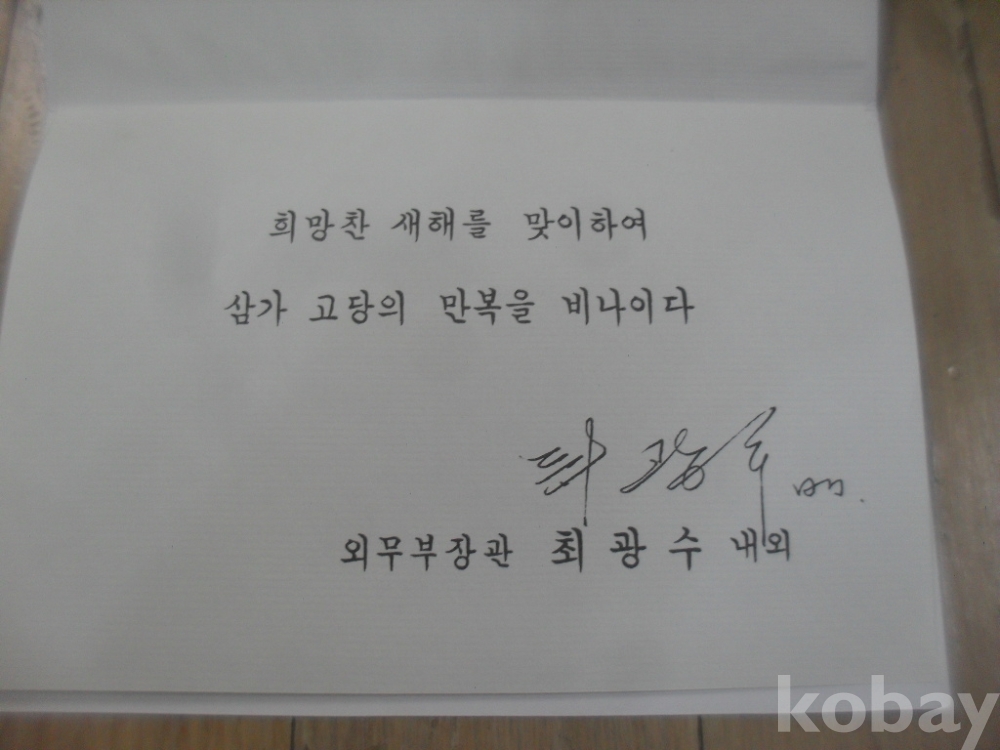 희망찬 새해를 맞이하여
삼가 고당의 만복을 비나이다
최광수
외무부장관 최 광 수 내외
kobay